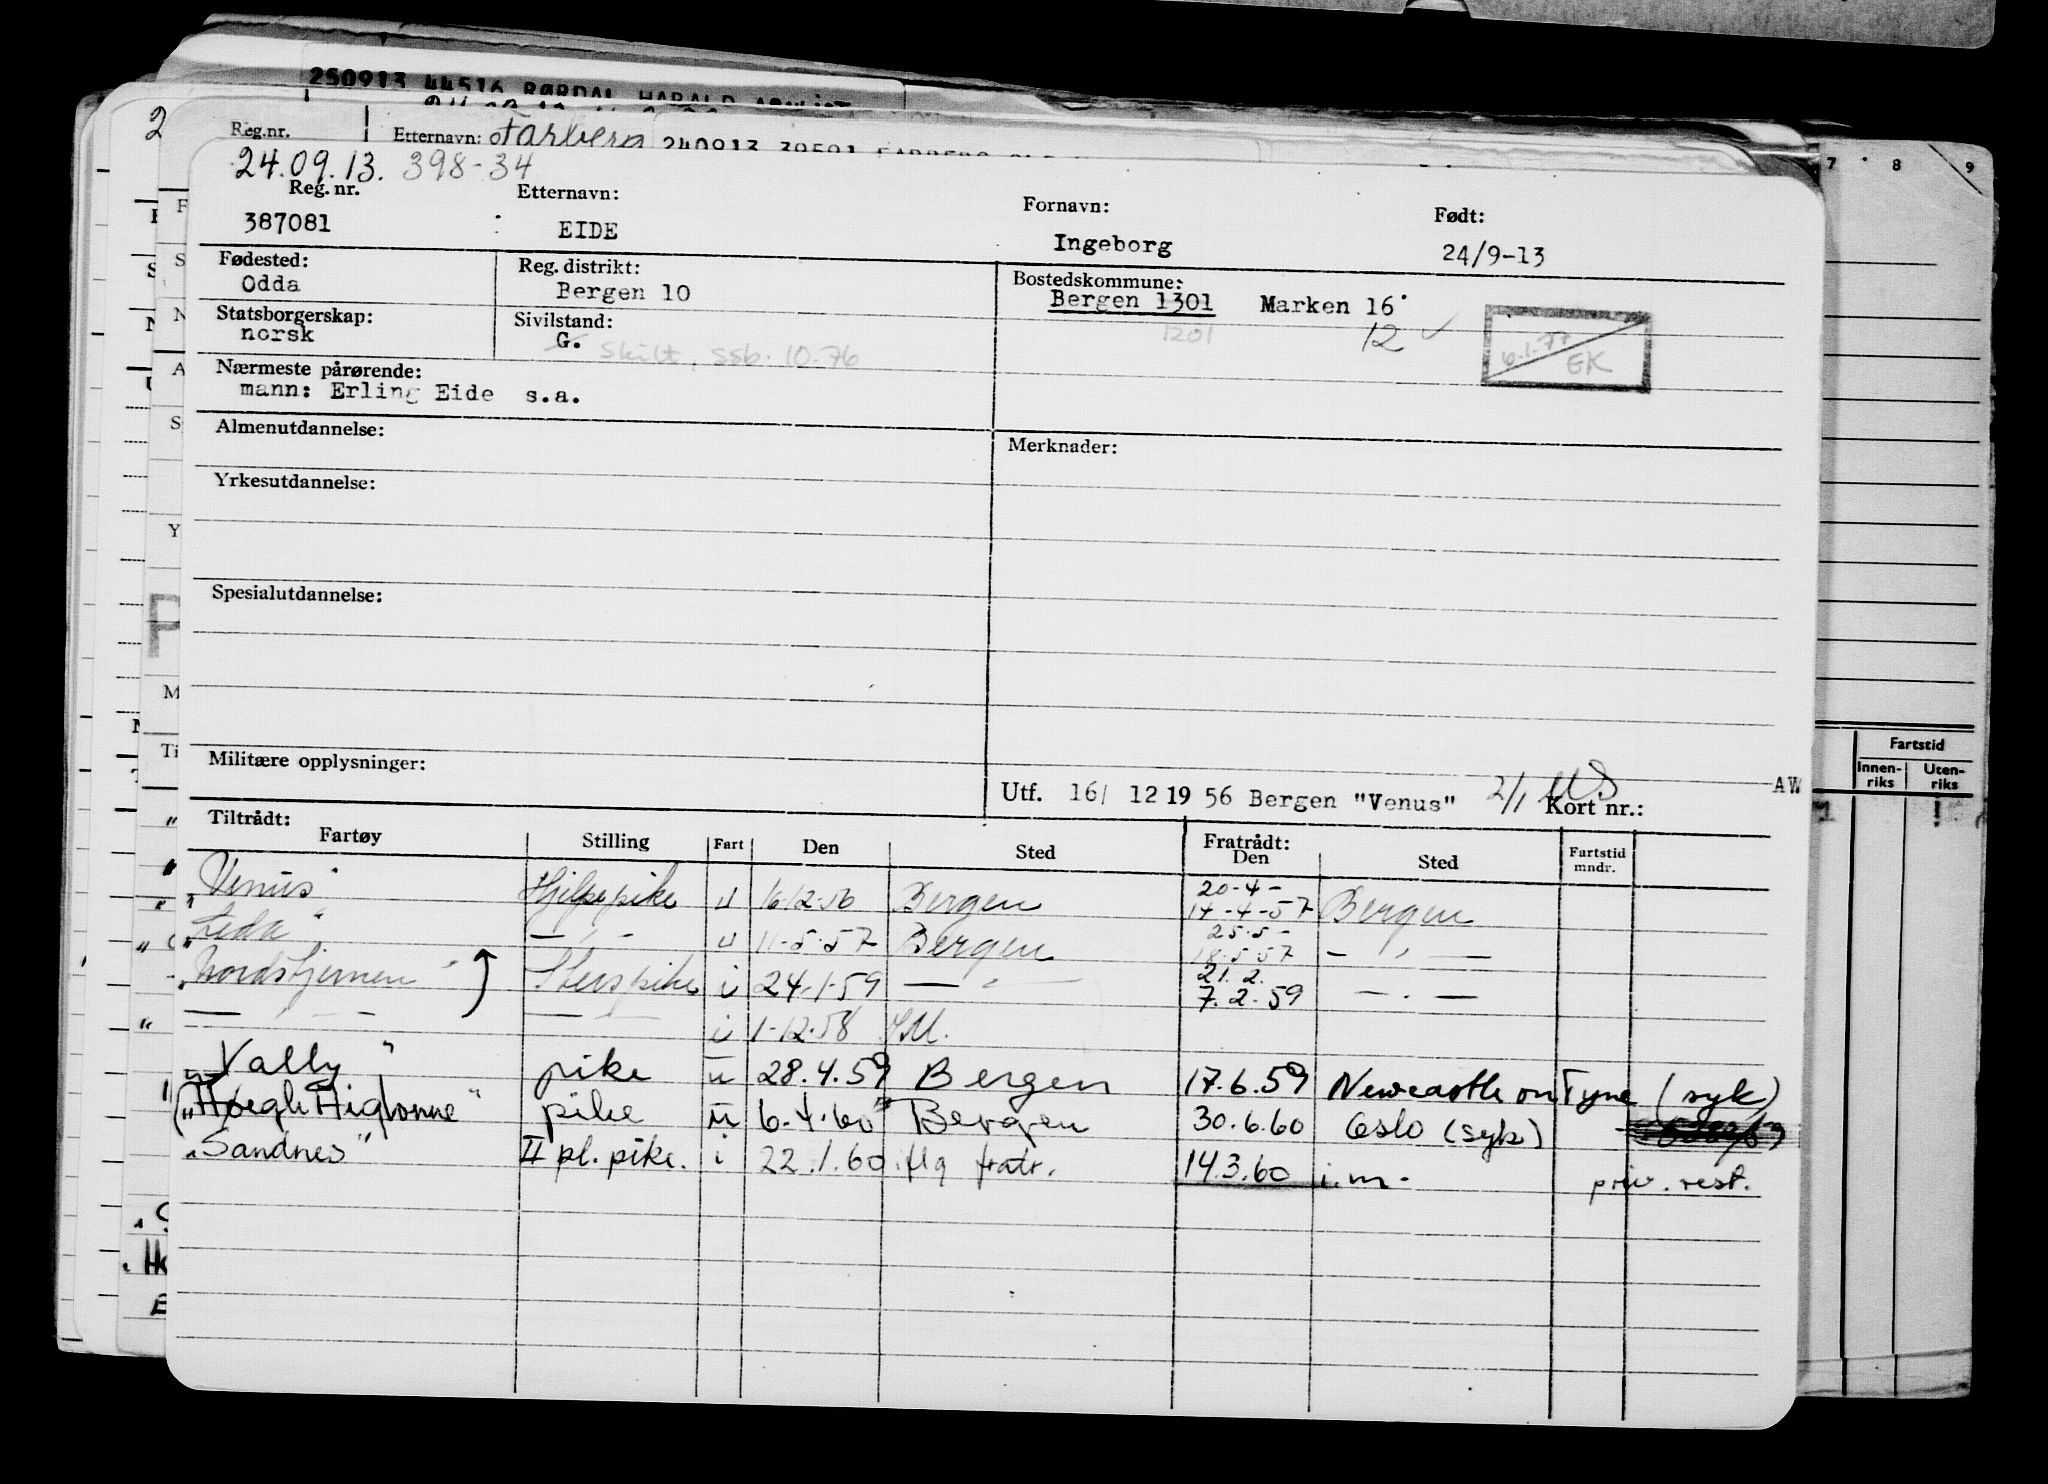 250913 44516 RØRDAL HARALD
Reg.nr. Etternavn: Farberg 240913 39591 FARBERG
24.09.13. 398-34
Reg. nr. Etternavn: Fornavn: Født:
387081 EIDE Ingeborg 24/9-13
Fødested: Reg. distrikt: Bostedskommune:
Odda Bergen 10 Bergen 1301 Marken 16
1201 12
Statsborgerskap: Sivilstand:
norsk G. skilt, ssb. 10-76
6-1-77 EK
Nærmeste pårørende:
mann: Erling Eide s.a.
Almenutdannelse: Merknader:
Yrkesutdannelse:
Spesialutdannelse:
Militære opplysninger:
Utf. 16/ 12 19 56 Bergen "Venus" 2/1 Kort nr.: AW
Tiltrådt: Fratrådt:
Fartøy Stilling Fart Den Sted Den Sted Fartstid mndr.
20-4-
"Venus" Hjelpepike u 16-12-56 Bergen 14-4-57 Bergen
25-5-
"Leda" — " — u 11-5-57 Bergen 18-5-57 — " —
21.2.
"Nordstjernen" Sterspike i 24-1-59 — " — 7.2.59 — " —
— " — — " — i 1-12-58 I.M.
"Vally" pike u 28.4.59 Bergen 17.6.59 Newcastle on Tyne (syk)
("Høegh Aigronne" pike u 6.4.60 Bergen 30.6.60 Oslo (syk)
"Sandnes" II pl. pike. i 22.1.60 flg fratr. 14.3.60 i.m. priv. rest.
7 8 9
Fartstid
Innenriks Utenriks